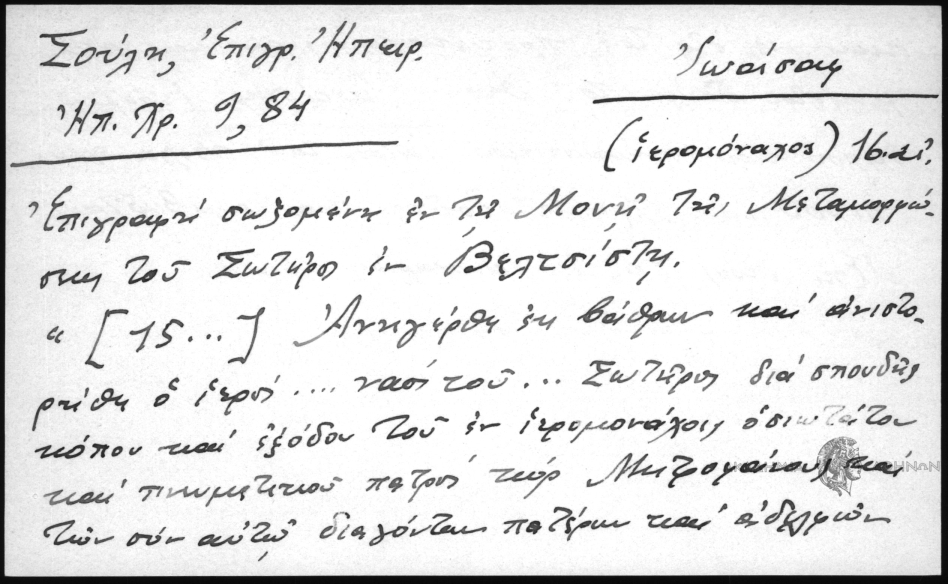 Σούλη, Ἐπιγρ. Ἠπειρ.
Ἠπ. Χρ. 9, 84
Ἰωάσαφ
(ἱερομόναχος) 16.αἰ.
Ἐπιγραφή σωζομένη ἐν τῇ Μονῇ τῆς Μεταμορφώ-
σεως τοῦ Σωτῆρος ἐν Βελτσίστῃ.
“ [15...] Ἀνηγέρθη ἐκ βάθρων καί ἀνιστο-
ρήθη ὁ ἱερός .... ναός τοῦ ... Σωτῆρος διά σπουδῆς
κόπου καί ἐξόδου τοῦ ἐν ἱερομονάχοις ὁσιωτάτου
καί πνευματικοῦ πατρός κύρ Μητροφάνους καί
τῶν σύν αὐτῷ διαγόντων πατέρων καί ἀδελφῶν